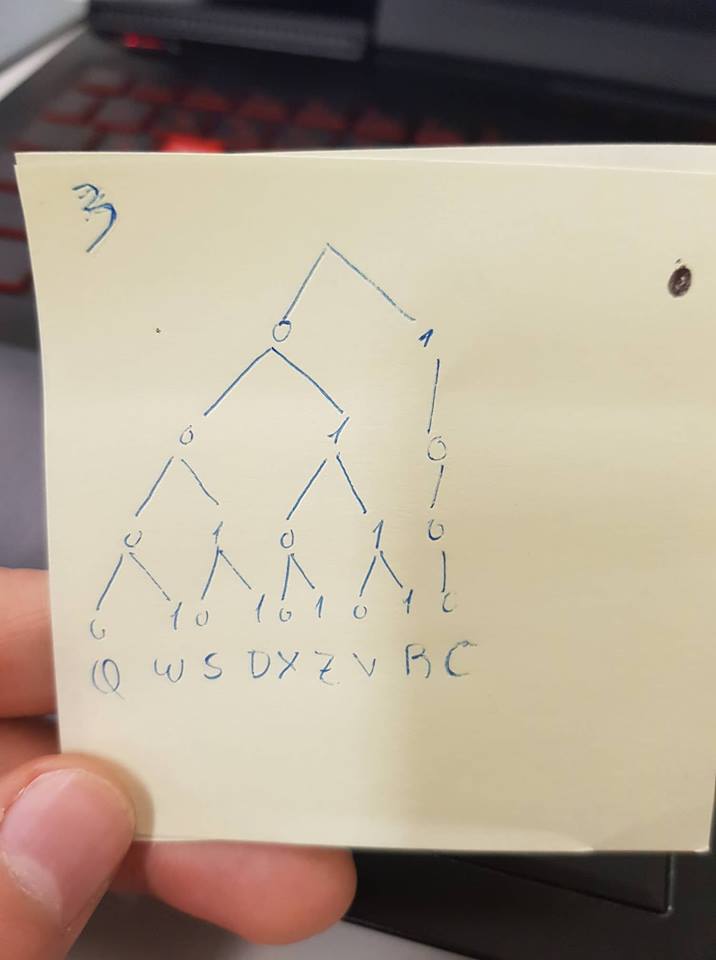 3
0 1
0 1 0
0 1 0 1 0
0 1 0 1 0 1 0 1 0
Q W S D X Z V B C